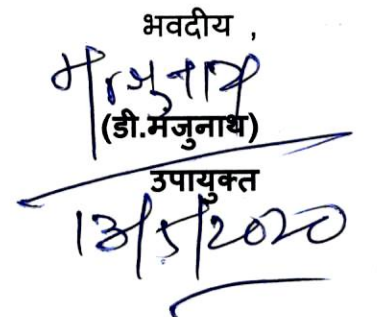 भवदीय ,
मंजुनाथ
(डी.मंजुनाथ)
उपायुक्त
13/5/2020